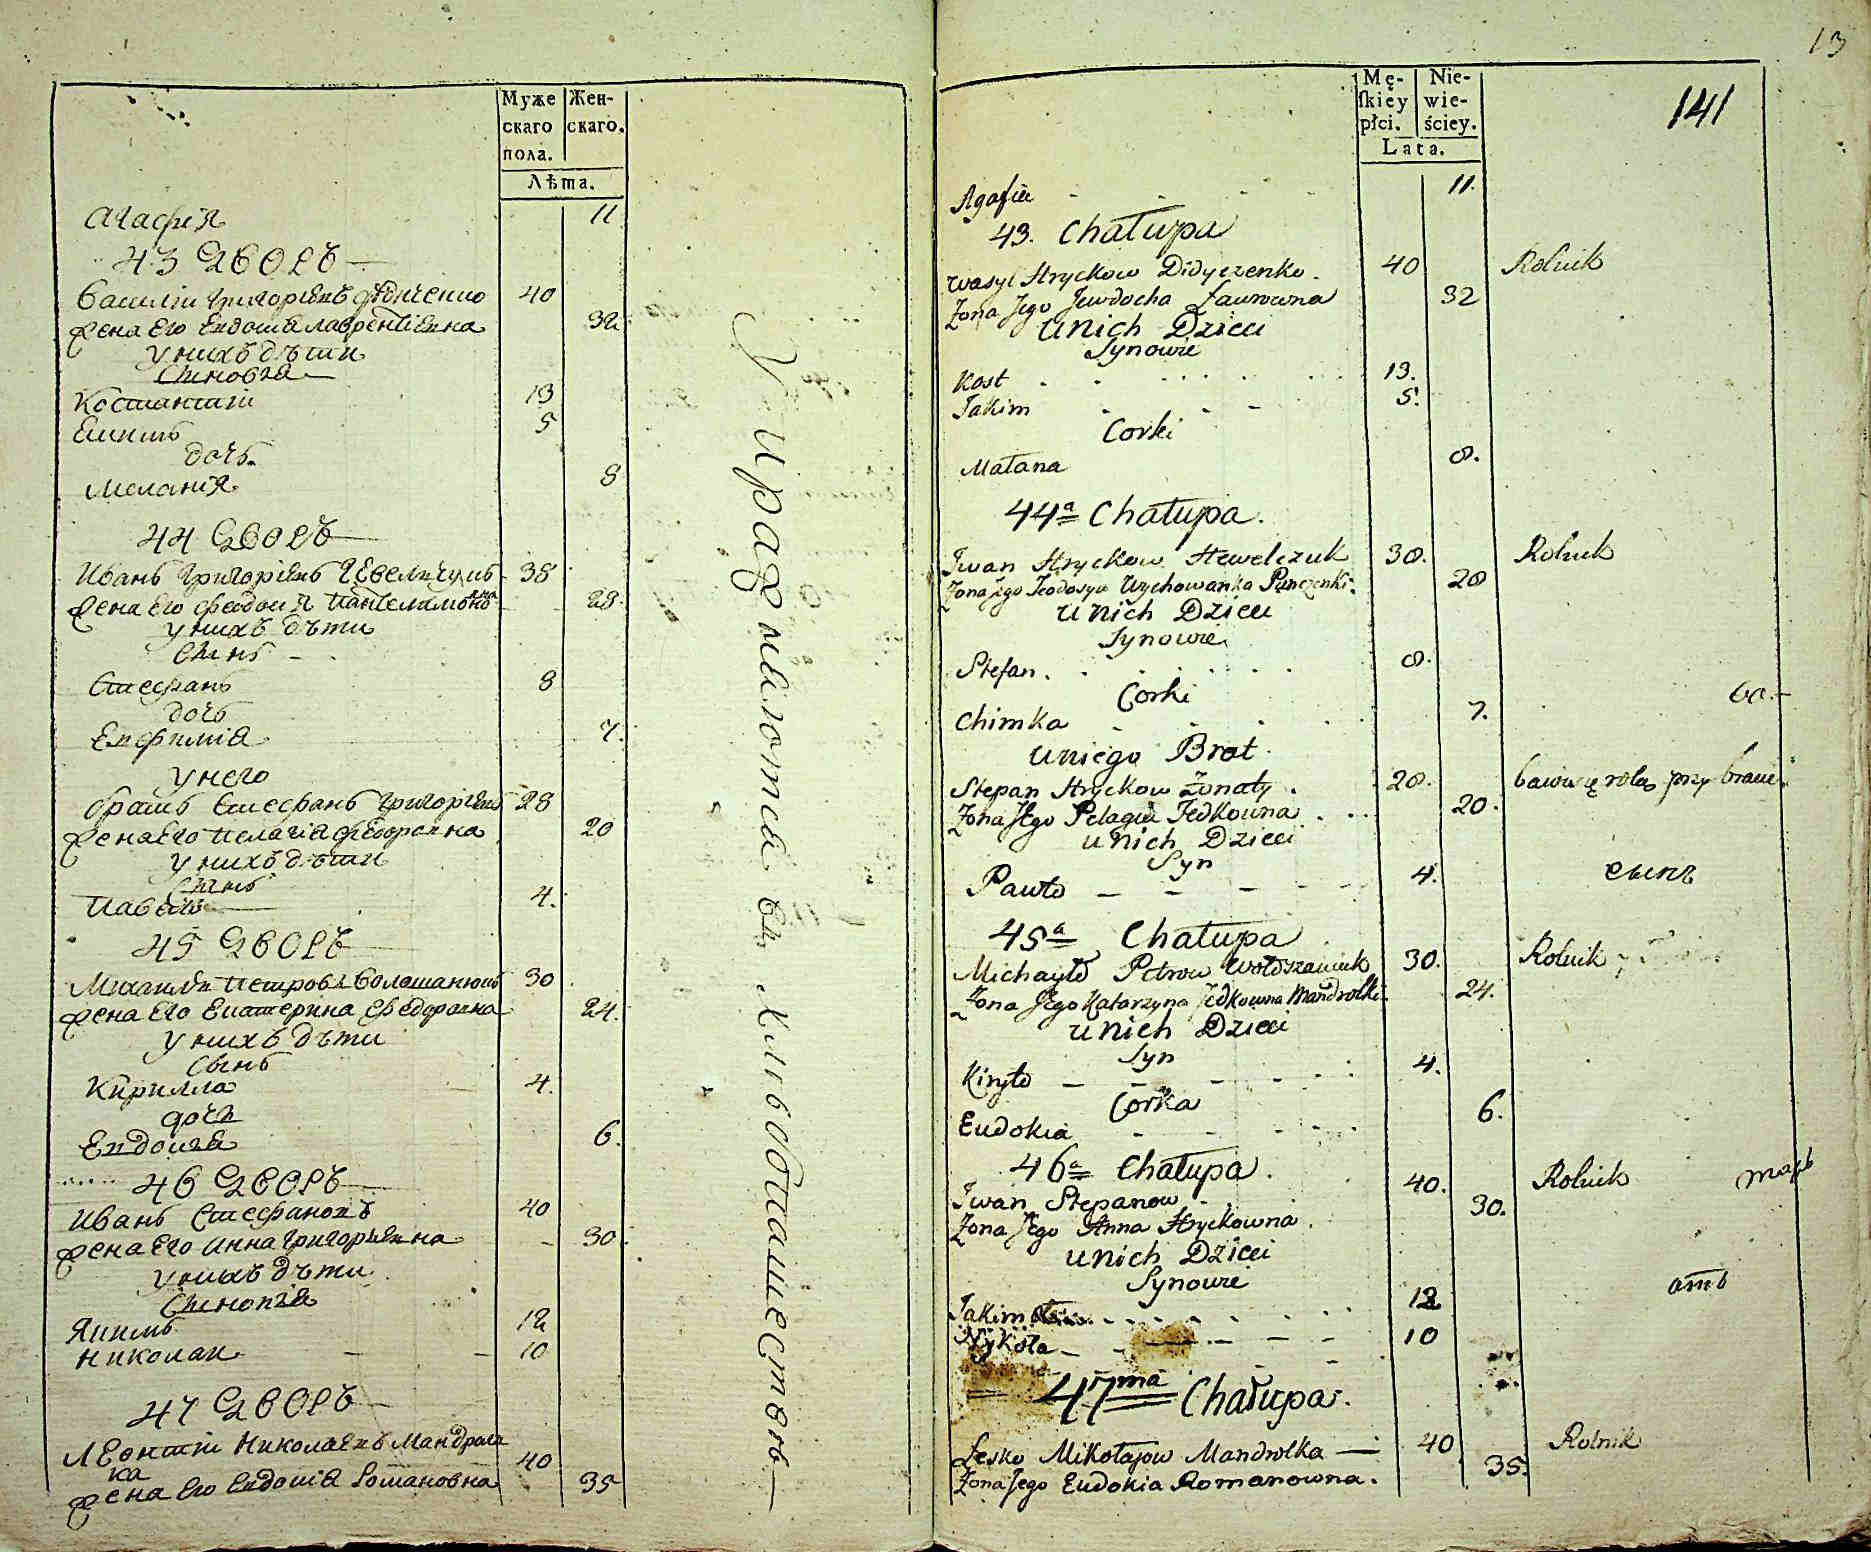 Муже Жен-
скаго скаго.
пола.
Лѣта.
Агафия 11
43 Дворъ
Василіи Григориевъ Дѣдиченко 40
Жена Его Евдокия Лаврентиевна 32
У нихъ дѣти
Сыновья
Костантии 13
Екимъ 5
дочь
Мелания 8
44 Дворъ
Иванъ Григориевъ 38
Жена Его Феодосия Пантелимоновна 28
У нихъ дѣти
Сынъ
Стефанъ 8
дочь
Евфимия 7.
У него
братъ Стефанъ Григориевъ 28
Жена Его Пелагия Федоровна 20
У нихъ дѣти
Сынъ
Павелъ 4.
45 Дворъ
Михаилъ Петровъ Волошанюкъ 30
Жена Его Екатерина Федоровна 24.
У нихъ дѣти
Сынъ
Кирилла 4.
дочь
Евдокия 6.
46 Дворъ
Иванъ Стефановъ 40
Жена Его Анна Григориевна 30
У нихъ дѣти
Сыновья
Якимъ 12
Николаи 10
47 Дворъ
Леонтии Николаевъ Мандролка 40
Жена Его Евдокия Романовна 35
Упражняются въ хлѣбопашествѣ
13
141
Mę- Nie-
skiey wie-
płci. ściey.
Lata.
Agafia 11.
43. Chałupa
Wasyl Hryckow Didyczenko. 40 Rolnik
Zona Jego Jewdocha Laurowna 32
U nich Dzieci
Synowie
Kost 13.
Jakim 5.
Corki
Małana 8.
44a Chałupa.
Jwan Hryckow Hewelczuk 38. Rolnik
Zona Jego Teodosya Wychowanka 28
U nich Dzieci
Synowie
Stefan. 8.
Corki
Chimka 7.
U niego Brat
Stepan Hryckow Zonaty. 28. bawi się rolą przy bracie.
Zona Jego Pelagia Fedkowna 20.
U nich Dzieci
Syn
Pawło 4. сынъ
45a Chałupa
Michayło Petrow Wołoszaniuk 30. Rolnik
Zona Jego Katarzyna Fedkowna Mandrolki. 24.
U nich Dzieci
Syn
Kiryło 4.
Corka
Eudokia 6.
46a Chałupa.
Jwan Stepanow 40. Rolnik
Zona Jego Anna Hryckowna. 30.
U nich Dzieci
Synowie
Jakim 12
Nykoła 10
47ma Chałupa.
Lesko Mikołajow Mandrolka 40 Rolnik
Zona Jego Eudokia Romanowna. 35.